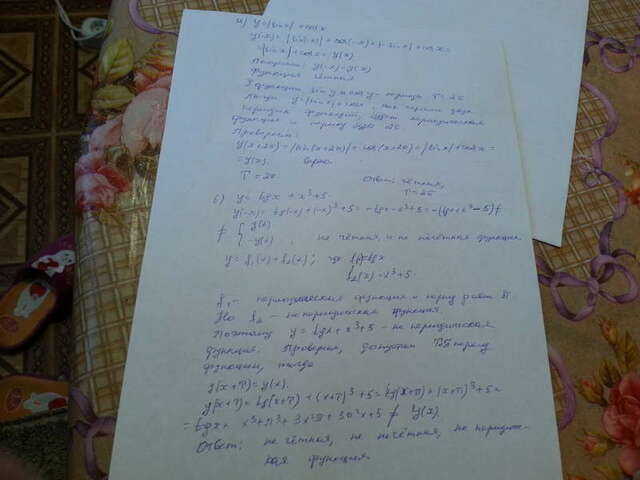 а) y=|sin x|+cos x
y(-x)=|sin(-x)|+cos(-x)=|-sin x|+cos x=
=|sin x|+cos x=y(x)
Получим: y(-x)=y(x)
функция чётная
функции период T=2π
y=|sin x|+cos x, как сумма двух
функций, будет периодическая
функция с
Проверим:
y(x+2π)=|sin(x+2π)|+cos(x+2π)=|sin x|+cos x=
=y(x). Верно.
T=2π. Ответ: чётная,
T=2π
б) y=tgx+x³+5
y(-x)=tg(-x)+(-x)³+5=-tgx-x³+5=-(tgx+x³-5)≠
≠ { y(x)
-y(x) не чётная, и не нечётная функция
y=f₁(x)+f₂(x); где f₁(x)=tgx
f₂(x)=x³+5
f₁ - периодическая функция и период равен π
Но f₂ - не периодическая функция.
Поэтому y=tgx+x³+5 - не периодическая
функция. Проверим, допустим период
функции, тогда
y(x+T)=y(x).
y(x+T)=tg(x+T)+(x+T)³+5=tg(x+π)+(x+π)³+5=
=tgx+x³+π³+3x²π+3π²x+5≠y(x).
Ответ: не чётная, не нечётная, не периодичес-
кая функция.